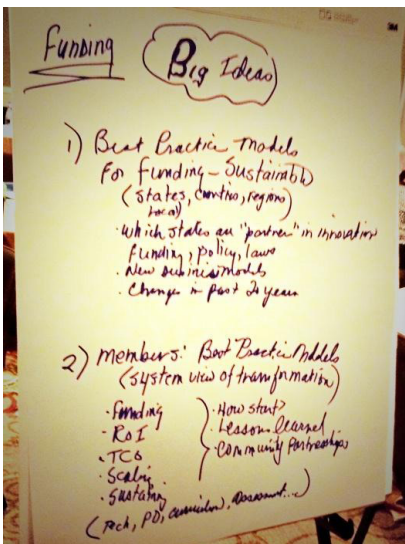 Funding
Big Ideas
1) Best Practice Models
For Funding - Sustainable
(States, counties, regions)
local
· Which states are "partner" in innovation
funding, policy, laws
· New business models
· Changes in past 20 years
2) Members: Best Practice Models
(system view of transformation)
· Funding
· ROI
· TCO
· Scaling
· Sustaining
· How start?
· Lessons learned
· Community Partnerships
(Tech, PD, curriculum, assessment...)
3M